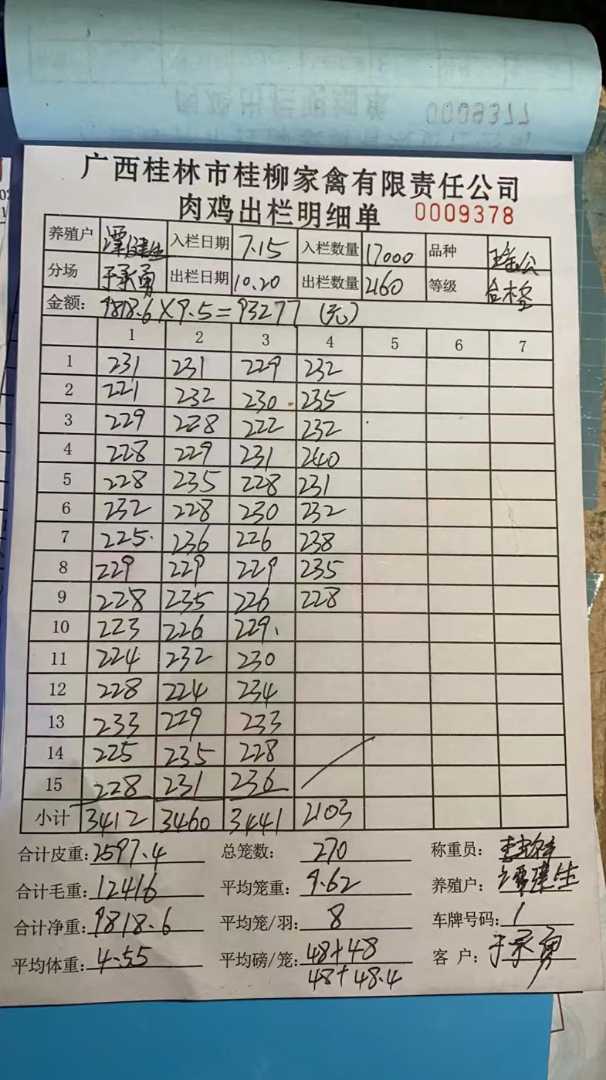 0009377
广西桂林市桂柳家禽有限责任公司
肉鸡出栏明细单 0009378
养殖户 入栏日期 7.15 入栏数量 17000 品种
分场 于承勇 出栏日期 10.20 出栏数量 2160 等级 合格
金额: 9818.6×9.5=93277 (元)
1 2 3 4 5 6 7
1 231 231 229 232
2 221 232 230 235
3 229 228 222 232
4 228 229 231 240
5 228 235 228 231
6 232 228 230 232
7 225 236 226 238
8 229 229 229 235
9 228 235 226 228
10 223 226 229
11 224 232 230
12 228 224 234
13 233 229 233
14 225 235 228
15 228 231 236
小计 3412 3460 3441 2103
合计皮重: 2597.4 总笼数: 270 称重员:
合计毛重: 12416 平均笼重: 9.62 养殖户: 谭建生
合计净重: 9818.6 平均笼/羽: 8 车牌号码: 1
平均体重: 4.55 平均磅/笼: 48+48 客 户: 于承勇
48+48.4